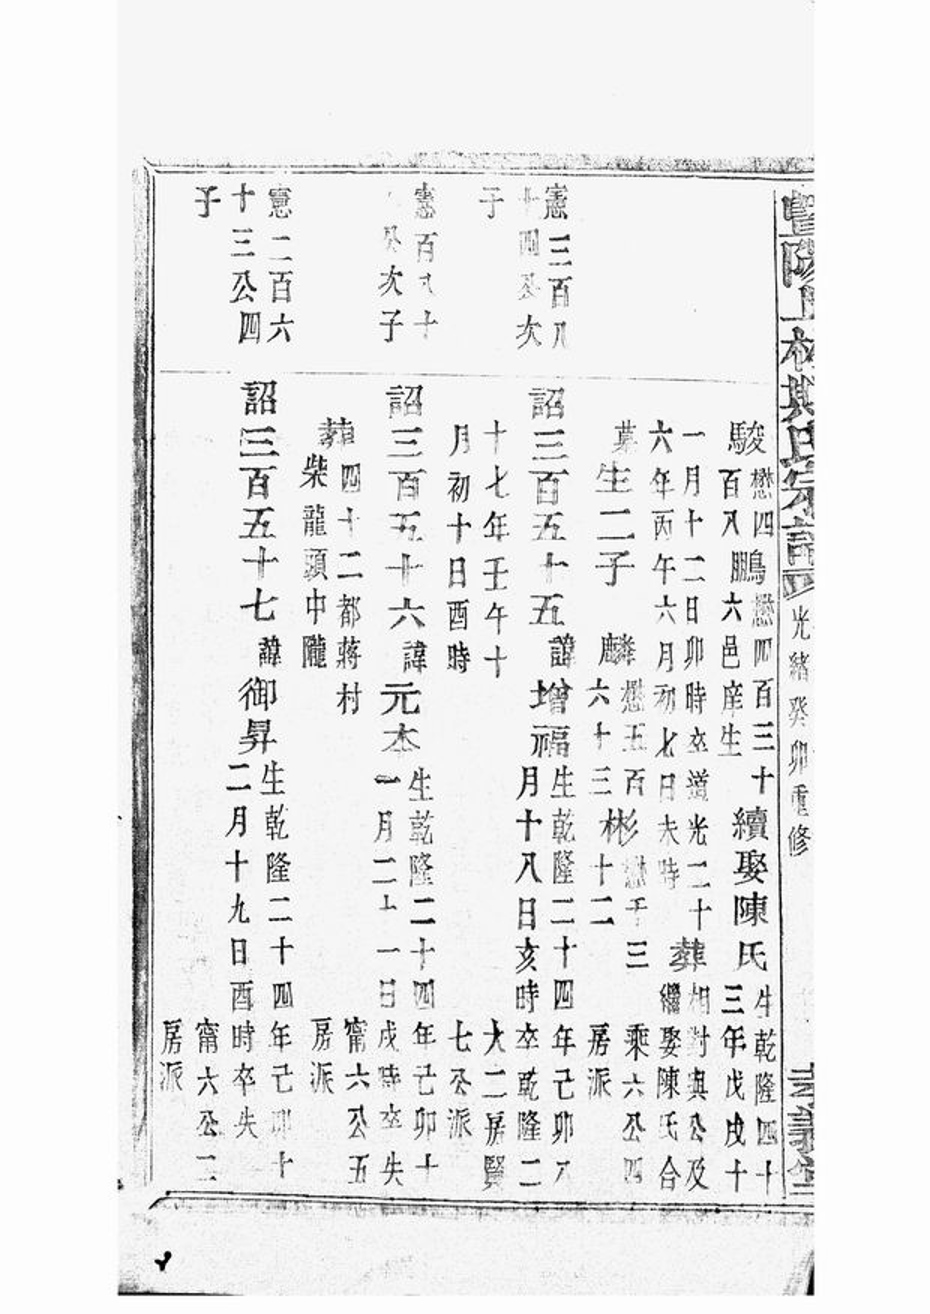 暨陽上林斯氏宗譜
光緒癸卯重修
駿懋四百八鵬懋四百三十六邑庠生續娶陳氏生乾隆四十三年戊戌十
一月十二日卯時卒道光二十六年丙午六月初七日未時葬相對與公及繼娶陳氏合
墓生二子麟懋五百六十三彬懋千三十二
乘六公四房派
憲三百八十四公次子
詔三百五十五諱增福生乾隆二十四年己卯八月十八日亥時卒乾隆二
十七年壬午十月初十日酉時
大二房賢七公派
憲百八十公次子
詔三百五十六諱元本生乾隆二十四年己卯十一月二十一日戌時卒失
葬四十二都蔣村柴龍頭中隴
甯六公五房派
憲二百六十三公四子
詔三百五十七諱御昇生乾隆二十四年己卯十二月十九日酉時卒失
甯六公二房派